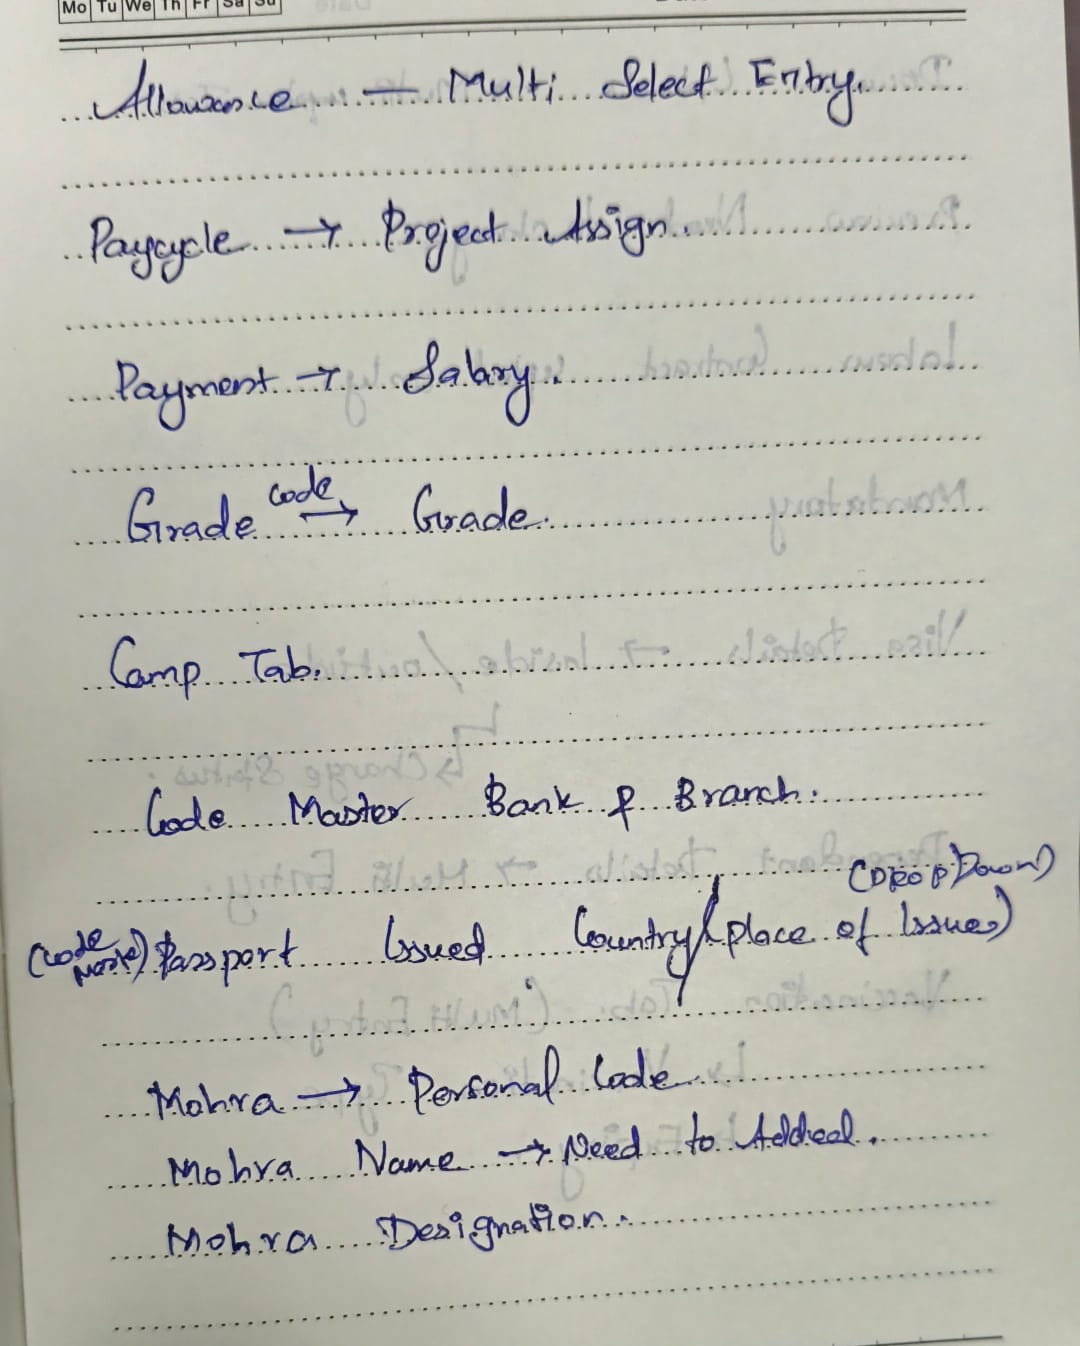 Mo Tu We Th Fr Sa Su
Allowance — Multi Select Entry.
Paycycle → Project Assign.
Payment → Salary.
Grade code → Grade.
Camp Tab.
Code Master Bank & Branch.
(DROP Down)
(Code) Passport Issued Country (place of Issue)
Mohra → Personal Code
Mohra Name → Need to Added.
Mohra Designation.